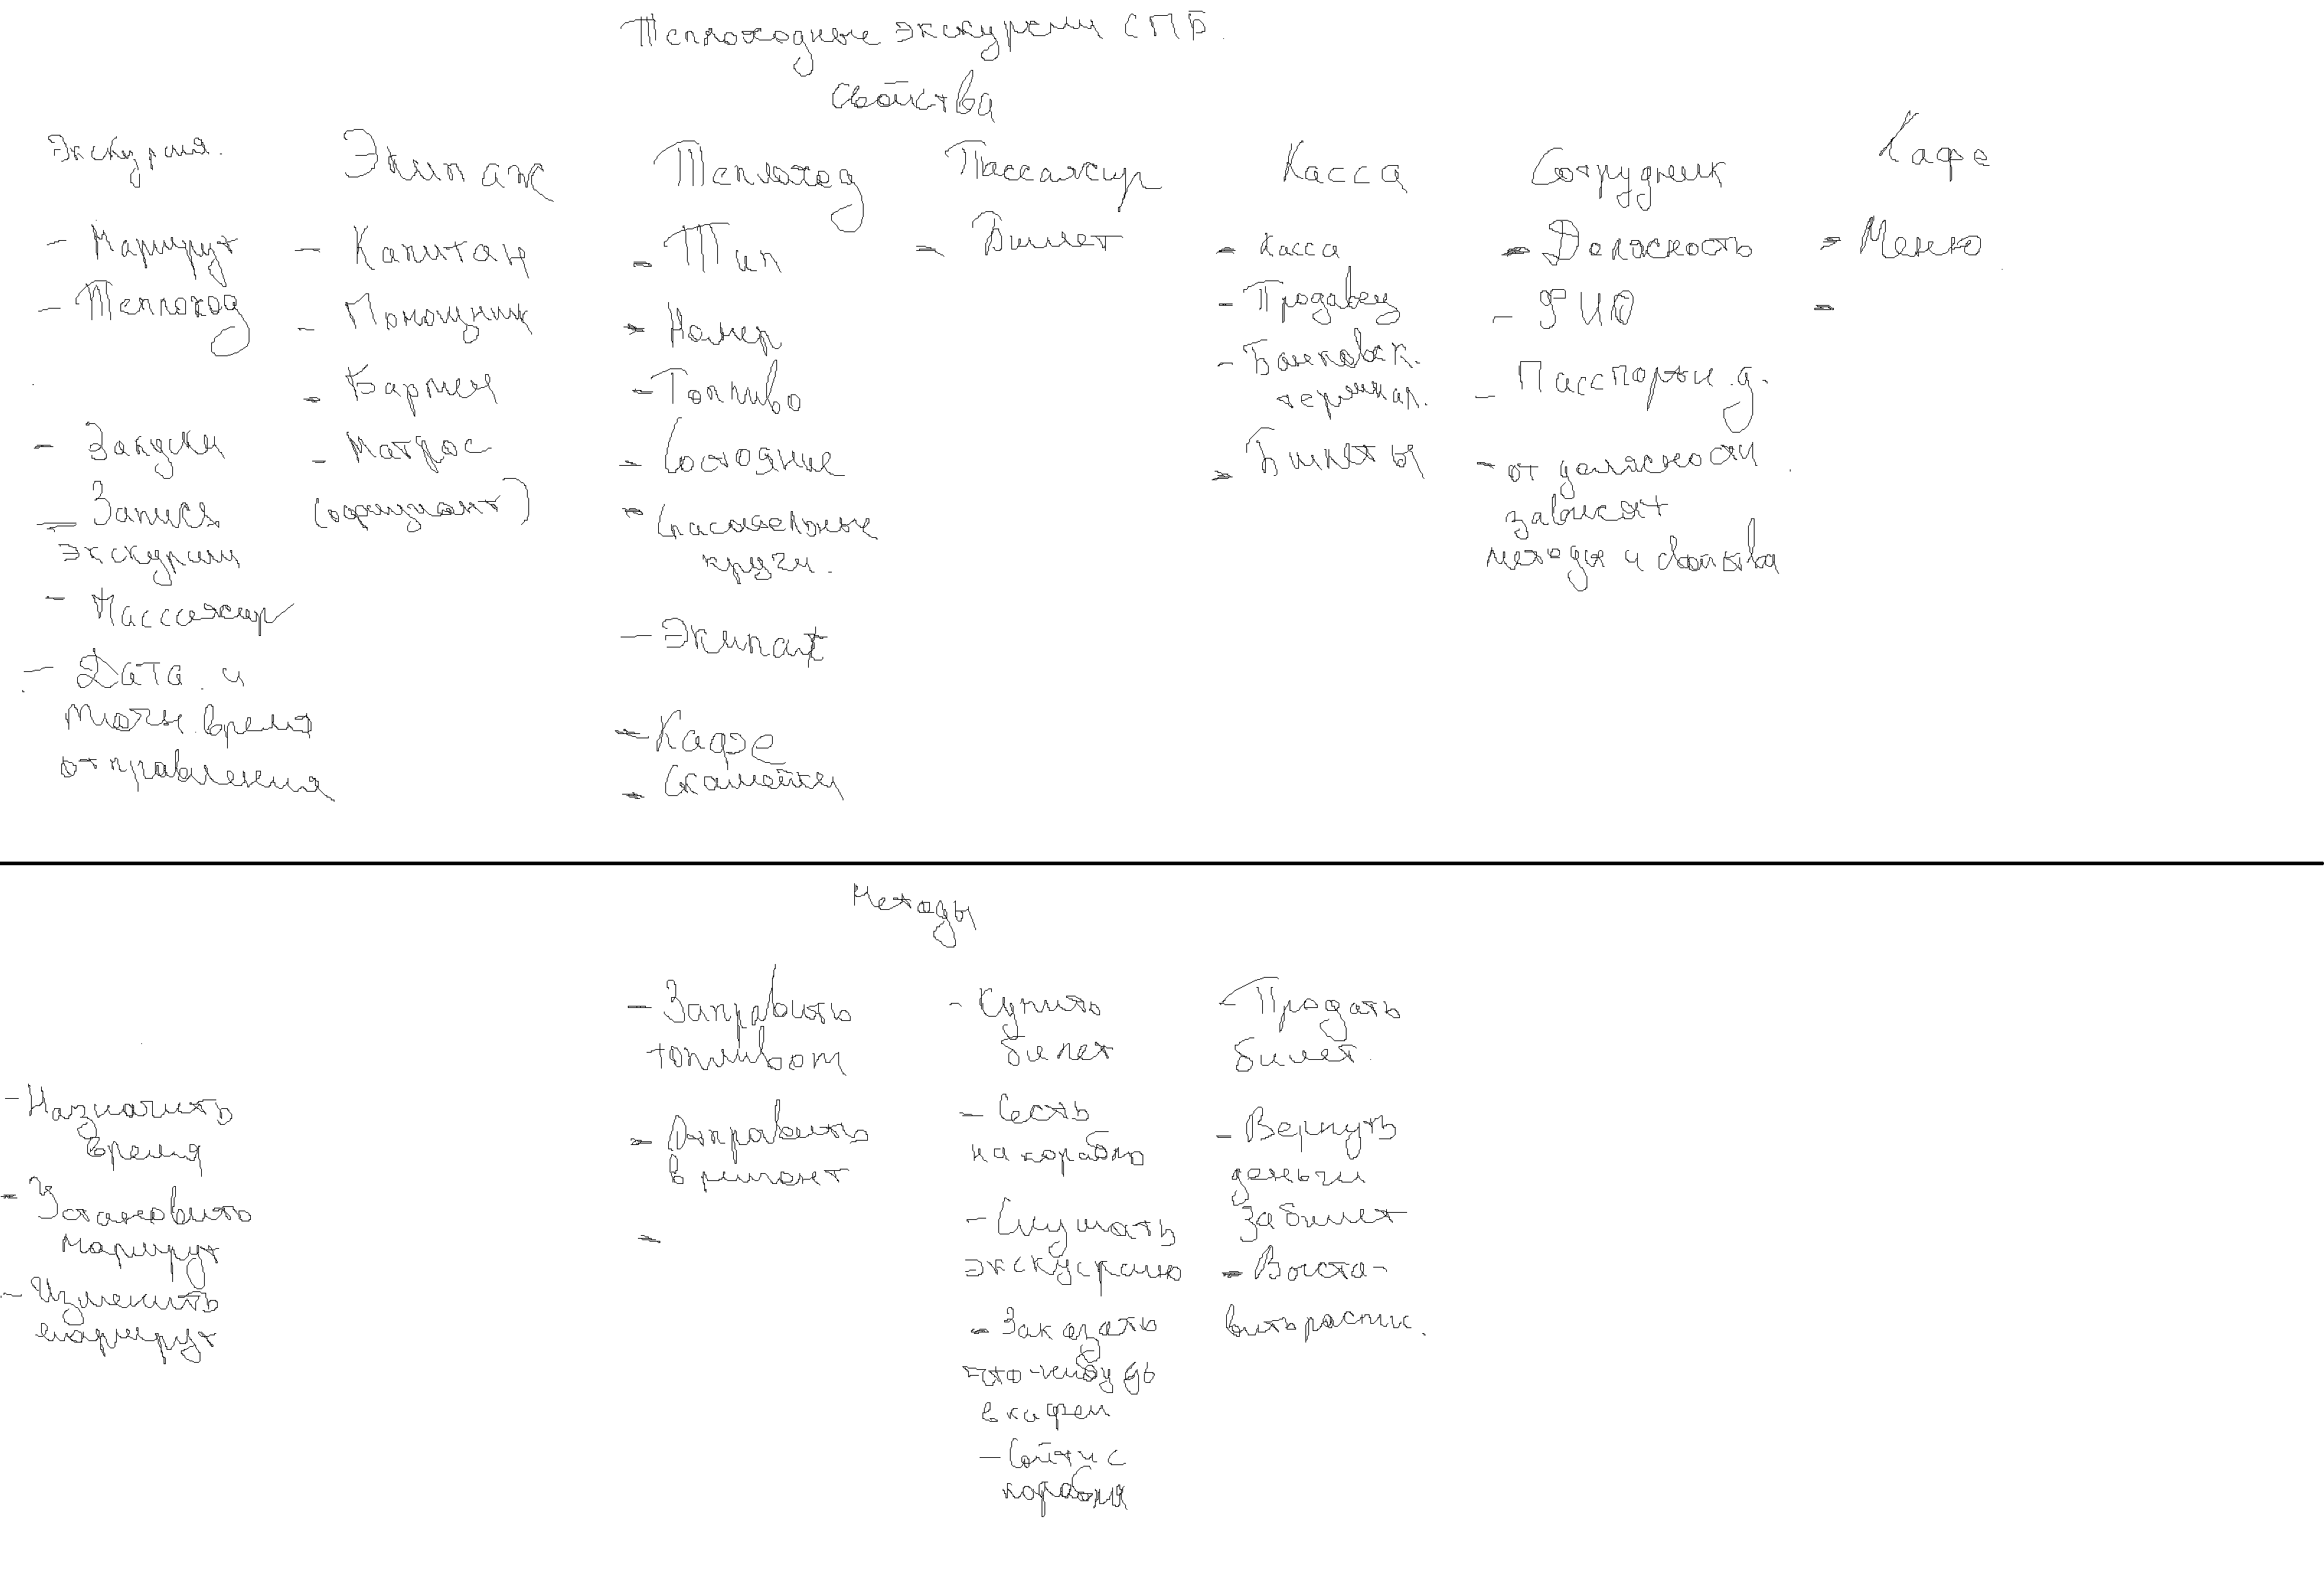 Теплоходные экскурсии СПБ.
свойства
Экскурсия.
- Маршрут
- Теплоход
- Закуски
- Запись
экскурсии
- Пассажир
- Дата и
точн. время
отправления
Экипаж
- Капитан
- Помощник
- Бармен
- Матрос
(официант)
Теплоход
- Тип
- Номер
- Топливо
- Состояние
- Спасательные
круги.
- Экипаж
- Кафе
- Скамейки
Пассажир
- Билет
Касса
- Касса
- Продавец
- Банковск.
терминал.
- Билеты
Сотрудник
- Должность
- ФИО
- Паспортн. д.
- от должности
зависят
методы и свойства
Кафе
- Меню
-
Методы
- Назначить
время
- Установить
маршрут
- Изменить
маршрут
- Заправить
топливом
- Отправить
в ремонт
-
- Купить
билет
- Сесть
на корабль
- Слушать
экскурсию
- Заказать
что-нибудь
в кафеи
- Сойти с
корабля
- Продать
билет.
- Вернуть
деньги
за билет
- Выста-
вить распис.